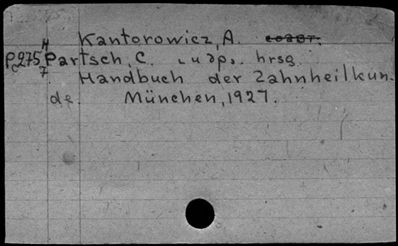 Kantorowicz, A.
P975 Partsch, C. u dp. hrsg.
7 Handbuch der Zahnheilkun.
de. München, 1927.